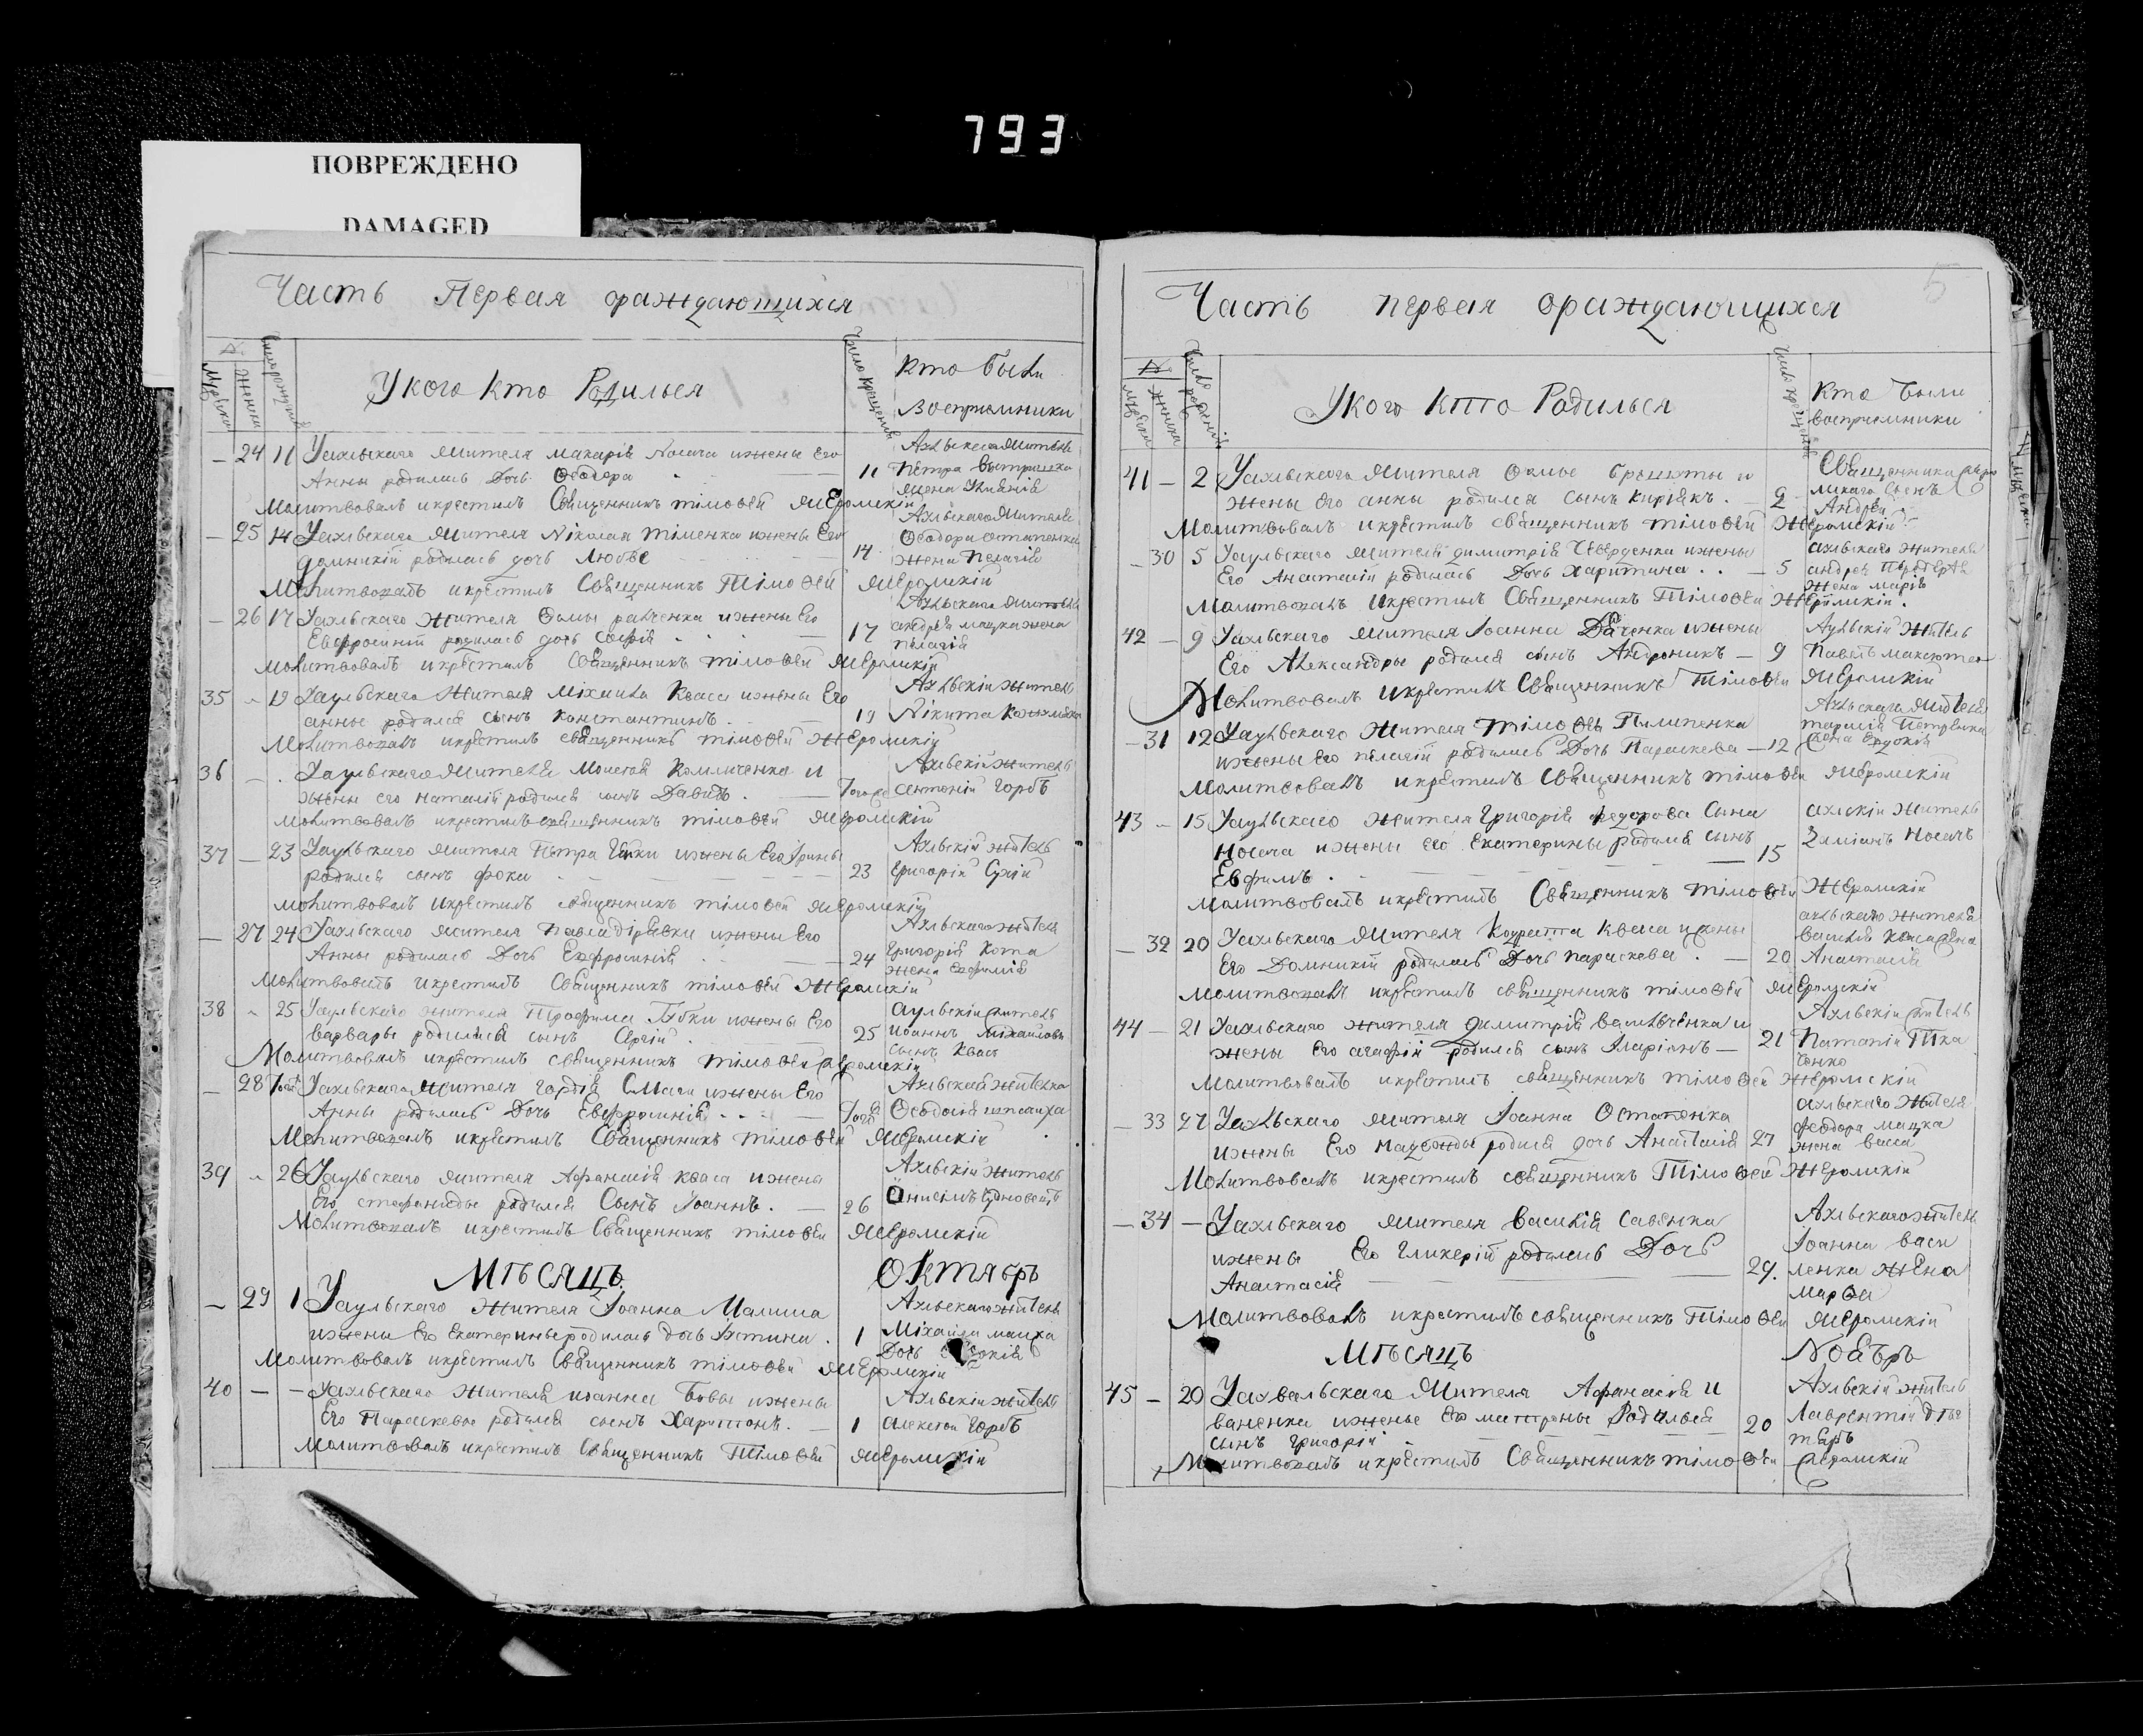 793
ПОВРЕЖДЕНО
DAMAGED
Часть Первая ораждающихся
Мужеска
Женска
Число рожденія
У кого кто Родилься
Число крещенія
Кто были
Воспріемники
24 11 Уахльскаго жителя макарія Носача ижены Его
Анны родилась Дочь Ѳеодора
11
Ахльскаго жителя
Петра
жена
Молитвовалъ икрестилъ Священникъ тімоѳей Жеромскій
25 14 Уахльскаго жителя Nіколая тіменка ижены Его
домникій родилась дочь Любве
14
Ахльскаго жителя
Ѳеодора остапенка
жена Пелагія
Молитвовалъ икрестилъ Священникъ Тімоѳей Жеромскій
26 17 Уахльскаго жителя Ѳомы ижены Его
Евфросиніи родилась дочь Софія
17
Ахльскаго жителя
андрея мацка жена
пелагія
Молитвовалъ икрестилъ Священникъ тімоѳей Жеромскій
35 19 Уаульскаго жителя Міхаила Кваса ижены Его
анны родился сынъ константинъ
19
Ахльскій житель
Nікита
Молитвовалъ икрестилъ священникъ тімоѳей Жеромскій
36 Уаульскаго жителя Моисея Комличенка и
жены его наталій родился сынъ Давидъ
Тогоже
Ахльскій житель
антоній Горбъ
молитвовалъ икрестилъ священникъ тімоѳей Жеромскій
37 23 Уаульскаго жителя Петра ижены Его Ірины
родился сынъ фока
23
Ахльскій житель
Григорій Сухій
молитвовалъ икрестилъ священникъ тімоѳей Жеромскій
27 24 Уахльскаго жителя Павла ижены Его
Анны родилась Дочь Евфросинія
24
Ахльскаго жителя
Григорія Кота
жена Евфимія
молитвовалъ икрестилъ Священникъ тімоѳей Жеромскій
38 25 Уаульскаго жителя Трофима Губки ижены Его
варвары родилься сынъ Сергій
25
аульскій житель
иоаннъ михаиловъ
сынъ Квасъ
Молитвовалъ икрестилъ священникъ тімоѳей Жеромскій
28 Тогоже Уахльскаго жителя Гордѣя ижены Его
Анны родилась Дочь Евфросинія
Тогоже
Ахльская жителка
Ѳеодосія
Молитвовалъ икрестилъ Священникъ тімоѳей Жеромскій
39 26 Уаульскаго жителя Афанасія кваса ижены
Его стефаниды родился Сынъ Іоаннъ
26
Ахльскій житель
Онисимъ
Молитвовалъ икрестилъ Священникъ тімоѳей Жеромскій
Мѣсяцъ Октябръ
29 1 Уаульскаго жителя Іоанна Малиша
ижены Его Екатерины родилась дочь Іустина
1
Ахльскаго жителя
Міхаила
Дочь
Молитвовалъ икрестилъ Священникъ тімоѳей Жеромскій
40 Уахльскаго жителя иоанна Бовы ижены
Его Параскевы родился сынъ Харитонъ
1
Ахльскій житель
алексей Горбъ
Молитвовалъ икрестилъ Священникъ Тімоѳей Жеромскій
5
Часть первая ораждающихся
Мужеска
Женска
Число рожденій
У кого кто Родилься
Число крещеній
Кто были
воспріемники
41 2 Уахльскаго жителя Ѳомы и
жены Его анны родился сынъ киріякъ
2
Священника
сынъ
Андрей
Молитвовалъ икрестилъ священникъ тімоѳей Жеромскій
30 5 Уаульскаго жителя димитрія ижены
Его Анастасій родилась Дочь Харитина
5
ахльскаго жителя
андрея
жена марія
Молитвовалъ икрестилъ Священникъ Тімоѳей Жеромскій
42 9 Уахльскаго жителя Іоанна ижены
Его Александры родился сынъ Андроникъ
9
Аульскій житель
Павелъ
Молитвовалъ икрестилъ Священникъ Тімоѳей Жеромскій
31 12 Уаульскаго жителя тімоѳея Пилипенка
ижены Его пелагій родилась Дочь Параскева
12
Ахльскаго жителя
тарасія Петренка
жена Евдокія
Молитвовалъ икрестилъ Священникъ тімоѳей Жеромскій
43 15 Уаульскаго жителя Григорія федорова Сына
Носача ижены его Екатерины родился сынъ
Евфимъ
15
ахлскій житель
Даміанъ Носачъ
Молитвовалъ икрестилъ Священникъ Тімоѳей Жеромскій
32 20 Уахльскаго жителя Кодрата Кваса ижены
Его Домникій родилась Дочь параскева
20
ахльскаго жителя
василія кваса жена
Анастасія
Молитвовалъ икрестилъ священникъ тімоѳей Жеромскій
44 21 Уахльскаго жителя димитрія василченка и
жены Его агафій родился сынъ Іларіонъ
21
Ахльскій житель
Потапій Тка
ченко
Молитвовалъ икрестилъ священникъ тімоѳей Жеромскій
33 27 Уахльскаго жителя Іоанна Остапенка
ижены Его родился дочь Анастасія
27
ахльскаго жителя
феодора мацка
жена васса
Молитвовалъ икрестилъ священникъ Тімоѳей Жеромскій
34 Уахльскаго жителя василія Савенка
ижены Его Гликерій родилась Дочь
Анастасія
29
Ахльскаго жителя
Іоанна васи
ленка жена
Марѳа
Молитвовалъ икрестилъ священникъ Тімоѳей Жеромскій
Мѣсяцъ Nоябръ
45 20 Уахвальскаго жителя Афанасія И
ваненка иженые Его матроны Родилься
сынъ Григорій
20
Ахльскій житель
Лаврентій дѣг
тяръ
Молитвовалъ икрестилъ Священникъ тімоѳей Жеромскій